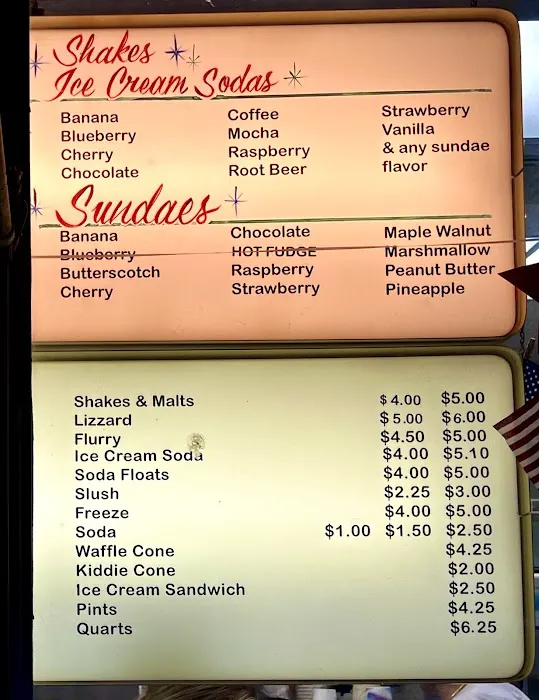 Shakes
Ice Cream Sodas
Banana Coffee Strawberry
Blueberry Mocha Vanilla
Cherry Raspberry & any sundae
Chocolate Root Beer flavor
Sundaes
Banana Chocolate Maple Walnut
Blueberry HOT FUDGE Marshmallow
Butterscotch Raspberry Peanut Butter
Cherry Strawberry Pineapple
Shakes & Malts $4.00 $5.00
Lizzard $5.00 $6.00
Flurry $4.50 $5.00
Ice Cream Soda $4.00 $5.10
Soda Floats $4.00 $5.00
Slush $2.25 $3.00
Freeze $4.00 $5.00
Soda $1.00 $1.50 $2.50
Waffle Cone $4.25
Kiddie Cone $2.00
Ice Cream Sandwich $2.50
Pints $4.25
Quarts $6.25